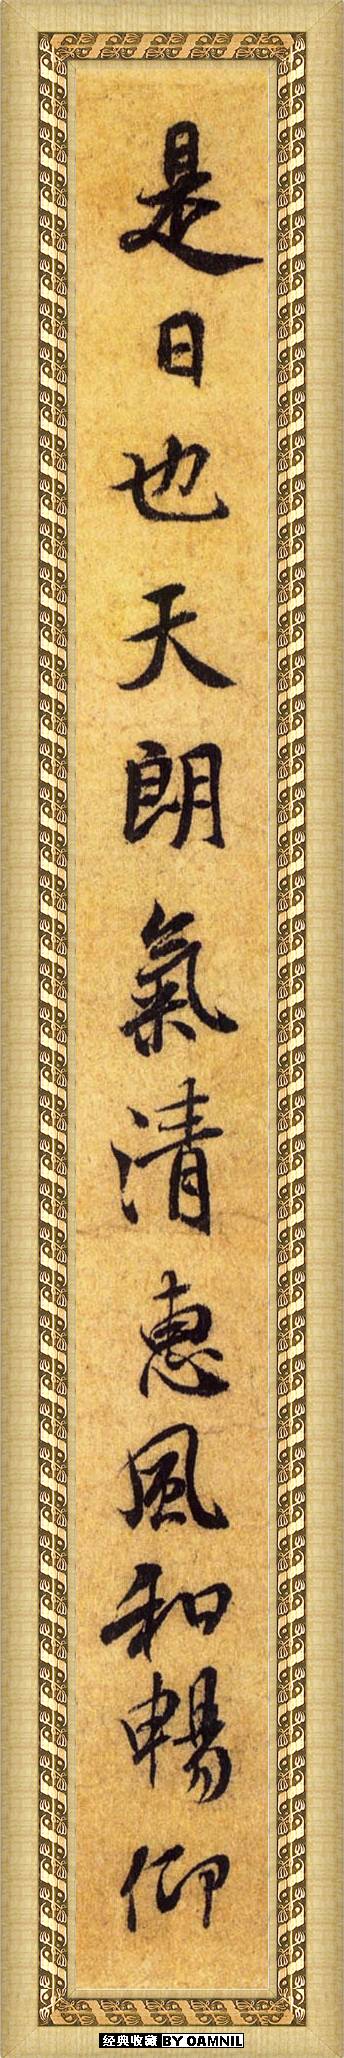 是日也天朗氣清惠風和暢仰
经典收藏 BY OAMNIL